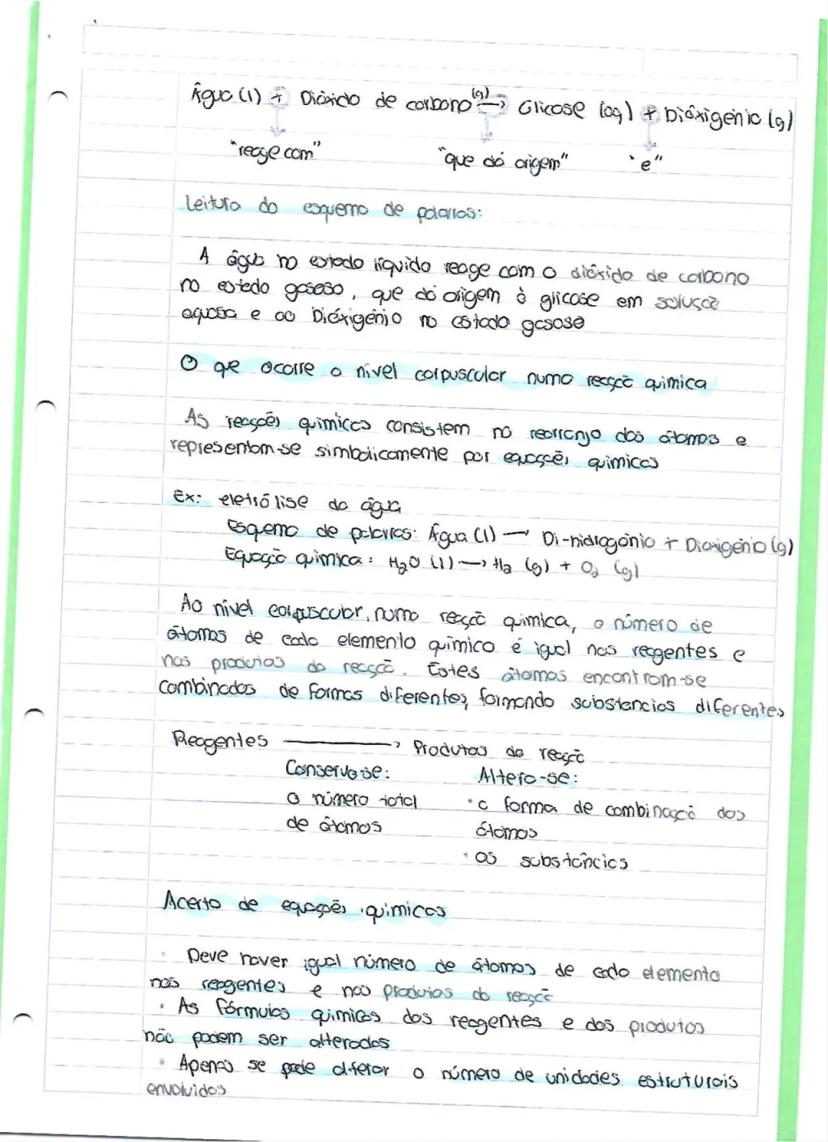 Água (l) + Dióxido de carbono (g) → Glicose (aq) + Dióxigénio (g)
"reage com" "que dá origem" "e"
Leitura do esquema de palavras:
A água no estado líquido reage com o dióxido de carbono
no estado gasoso, que dá origem à glicose em solução
aquosa e ao Dióxigénio no estado gasoso
O que ocorre a nível corpuscular numa reação química
As reações químicas consistem no rearranjo dos átomos e
representam-se simbolicamente por equações químicas
Ex: eletrólise da água
Esquema de palavras: Água (l) → Di-hidrogónio + Dioxigénio (g)
Equação química: H₂O (l) → H₂ (g) + O₂ (g)
Ao nível corpuscular, numa reação química, o número de
átomos de cada elemento químico é igual nos reagentes e
nos produtos da reação. Estes átomos encontram-se
combinados de formas diferentes, formando substancias diferentes
Reagentes → Produtos da reação
Conserva-se: Altera-se:
o número total · a forma de combinação dos
de átomos átomos
· as substâncias
Acerto de equações químicas
· Deve haver igual número de átomos de cada elemento
nos reagentes e nos produtos da reação
· As fórmulas químicas dos reagentes e dos produtos
não podem ser alteradas
· Apenas se pode alterar o número de unidades estruturais
envolvidas